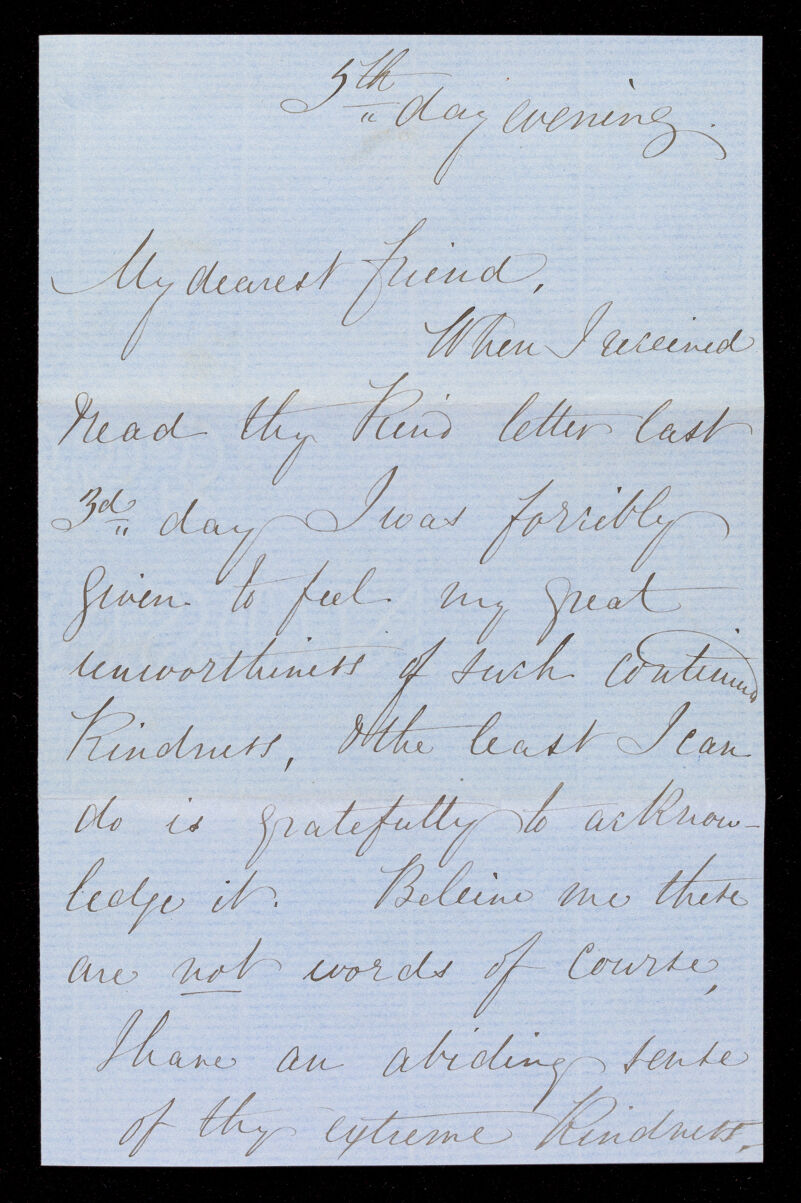 5th day evening.
My dearest friend,
When I received
read thy kind letter last
3d day I was forcibly
given to feel my great
unworthiness of such continued
kindness, & the least I can
do is gratefully to acknow-
ledge it. Beleive me these
are not words of course,
I have an abiding sense
of thy extreme kindness.